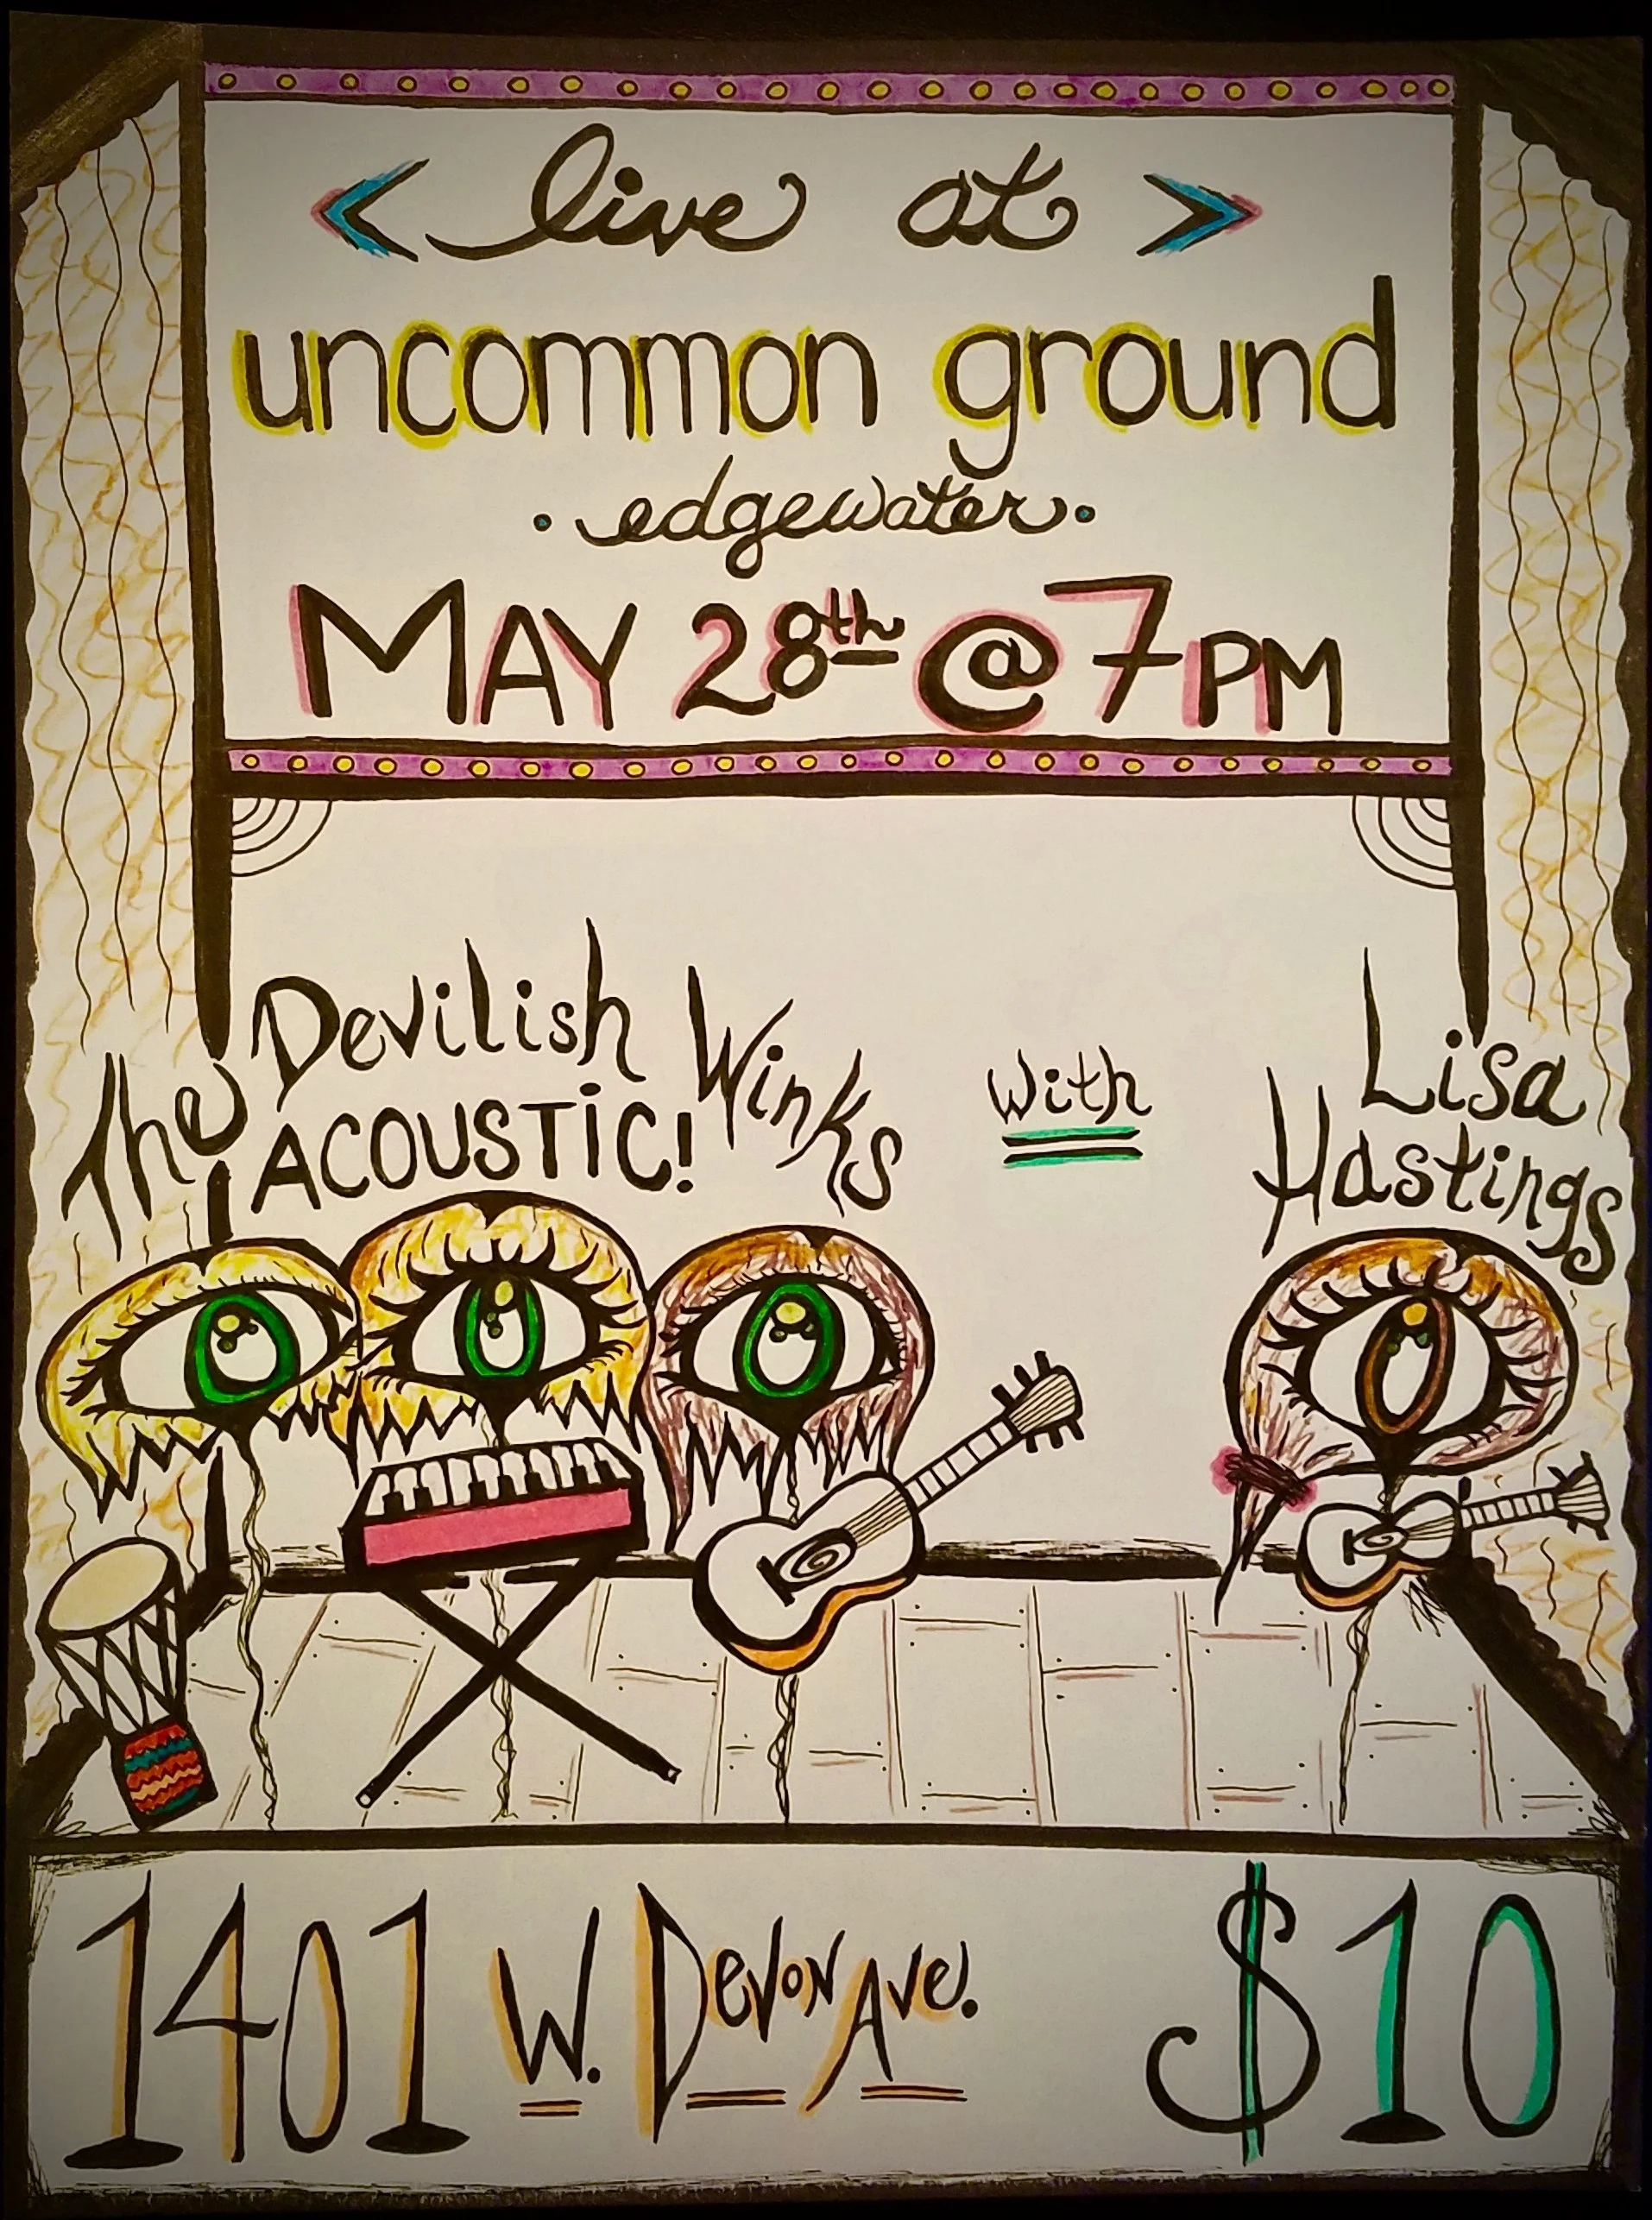 < live at >
uncommon ground
• edgewater •
MAY 28th @ 7PM
The Devilish Winks
ACOUSTIC!
With
Lisa
Hastings
1401 W. Devon Ave.
$10